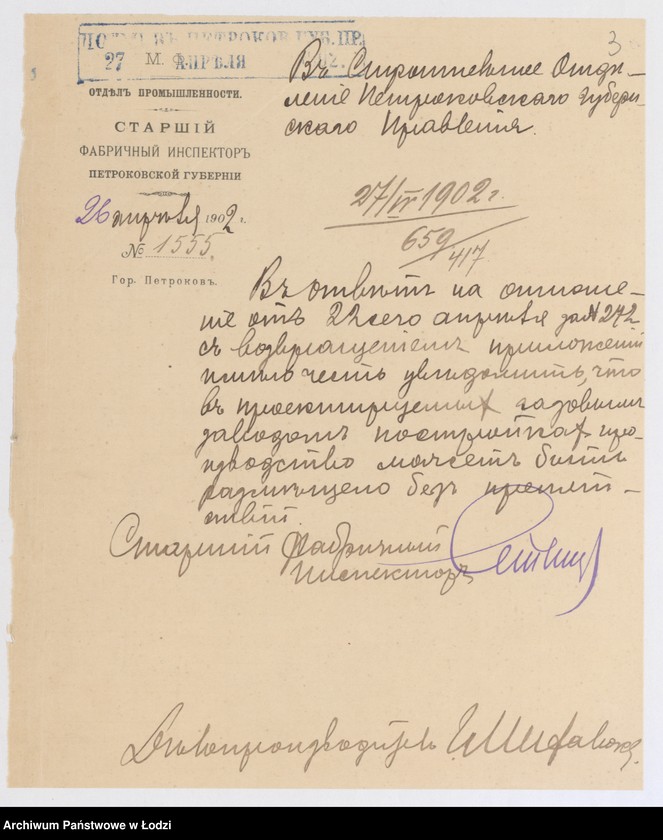 3
27 АПРѢЛЯ
М. Ф.
ОТДѢЛЪ ПРОМЫШЛЕННОСТИ.
СТАРШІЙ
ФАБРИЧНЫЙ ИНСПЕКТОРЪ
ПЕТРОКОВСКОЙ ГУБЕРНІИ
26 апрѣля 1902 г.
№ 1555
Гор. Петроковъ.
Въ Строительное Отдѣ-
леніе Петроковскаго Губерн-
скаго Правленія.
27/IV 1902 г.
659/417
Въ отвѣтъ на отноше-
ніе отъ 22 сего апрѣля за № 242
съ возвращеніемъ приложеній
имѣю честь увѣдомить, что
въ проектируемыхъ газовымъ
заводомъ постройкахъ про-
изводство можетъ быть
размѣщено безъ препят-
ствій.
Старшій фабричный
Инспекторъ
Дѣлопроизводитель
Archiwum Państwowe w Łodzi